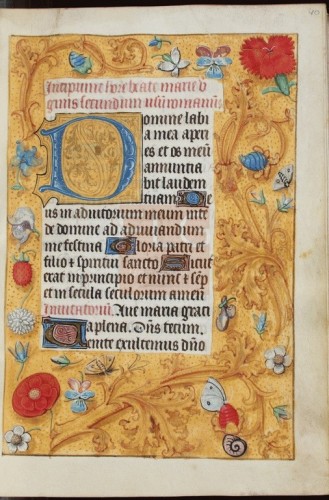 Incipiunt hore beate marie v
ginis secundum usū romanum
Domine labi
a mea aperi
es et os meū
annuntia
bit laudem
tuam De
us in adiutorium meum inte
de domine ad adiuvandum
me festina Gloria patri et
filio et spiritui sancto Sicut
erat in principio et nunc et semp
et in secula seculorum amen
Invitatoriū. Ave maria grati
a plena. Dn̄s tecum.
Venite exultemus dn̄o